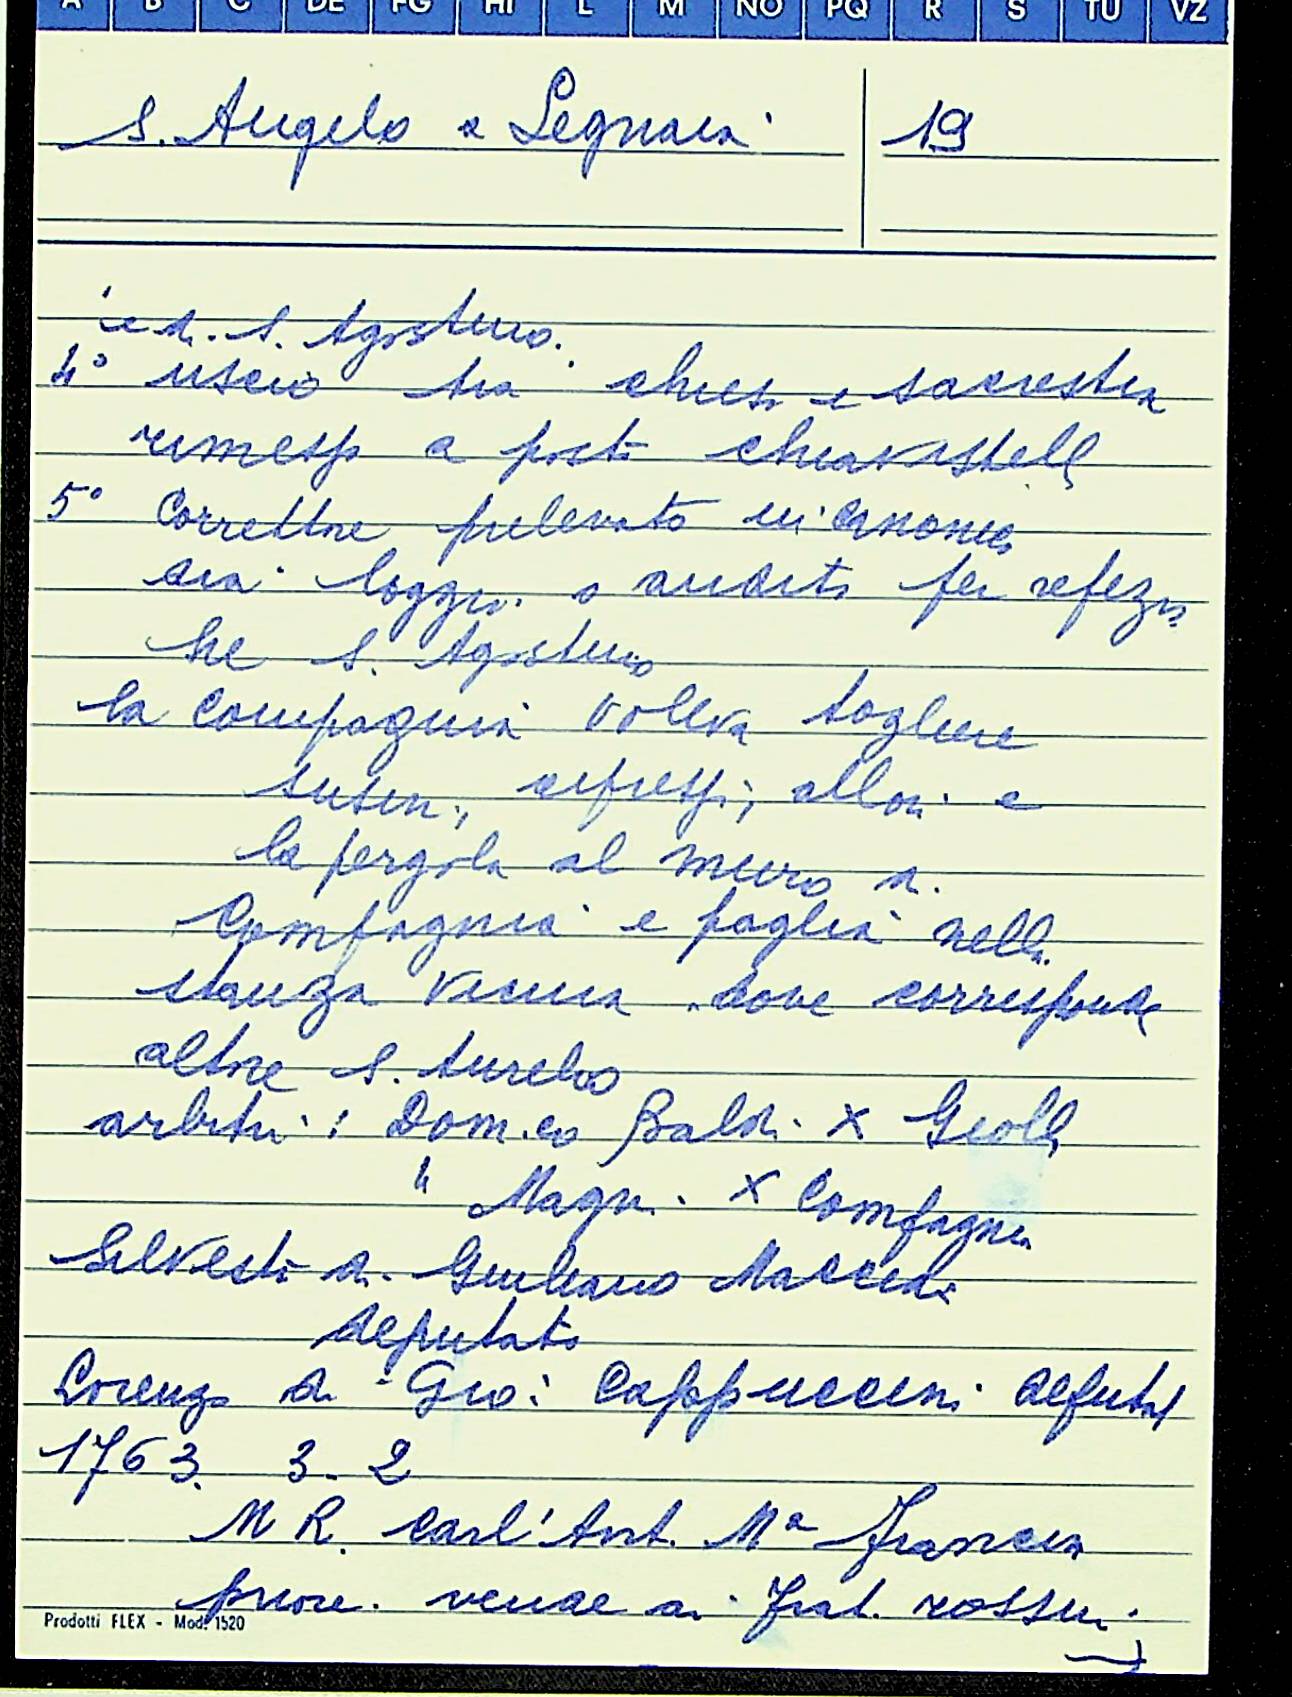 A B C DE FG HI L M NO PQ R S TU VZ
S. Angelo a Legnaia 19
e di S. Agostino.
4° uscio tra chiesa e sacrestia
rimesso a posto chiavistello
5° Correttore prelevato in canonica
sia loggia o andito per refezio
ne S. Agostino
la Compagnia voleva togliere
susini, cipressi, allori e
la pergola al muro di
Compagnia e paglia nella
stanza vicina dove corrisponde
altare S. Aurelio
arbitri: Dom.co Baldi X Giolli
" Magni X Compagnia
Silvestro di Giuliano
deputato
Lorenzo di Gio: Cappuccini deputato
1763. 3. 2
M R. Carl'Ant. Mª Francesco
priore vende ai frat. rossini
Prodotti FLEX - Mod. 1520